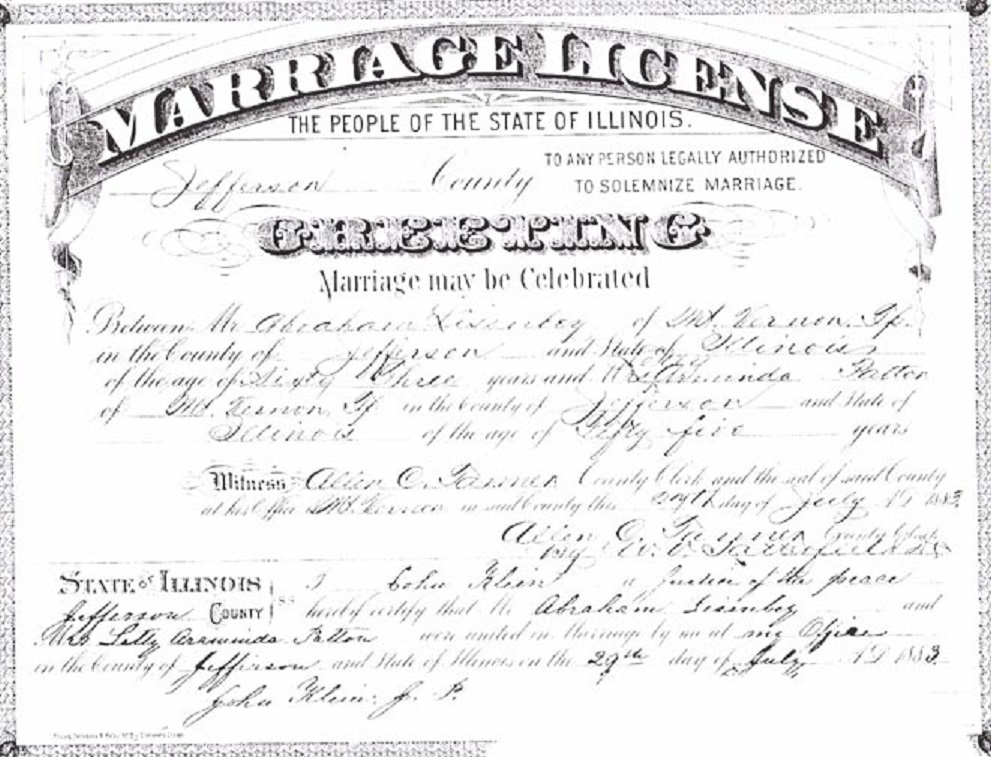 MARRIAGE LICENSE
THE PEOPLE OF THE STATE OF ILLINOIS.
Jefferson County TO ANY PERSON LEGALLY AUTHORIZED
TO SOLEMNIZE MARRIAGE.
GREETING
Marriage may be Celebrated
Between Mr Abraham Lisenbey of Mt. Vernon. Ill.
in the County of Jefferson and State of Illinois
of the age of Sixty Three years and Araminda Patton
of Mt. Vernon, Ill. in the County of Jefferson and State of
Illinois of the age of Fifty five years
Witness Allen C. Tanner County Clerk and the seal of said County
at his Office Mt. Vernon in said County this 29th day of July A.D 1883
Allen C. Tanner County Clerk
By W. V.
STATE of ILLINOIS I John Klein a Justice of the peace
Jefferson COUNTY ss hereby certify that Mr Abraham Lisenbey and
Mrs Letty Araminda Patton were united in Marriage by me at my Office
in the County of Jefferson and State of Illinois on the 29th day of July A.D 1883.
John Klein J. P.